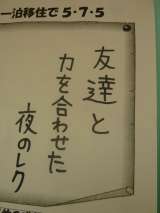 一泊移住で5・7・5
友達と
力を合わせた
夜のレク